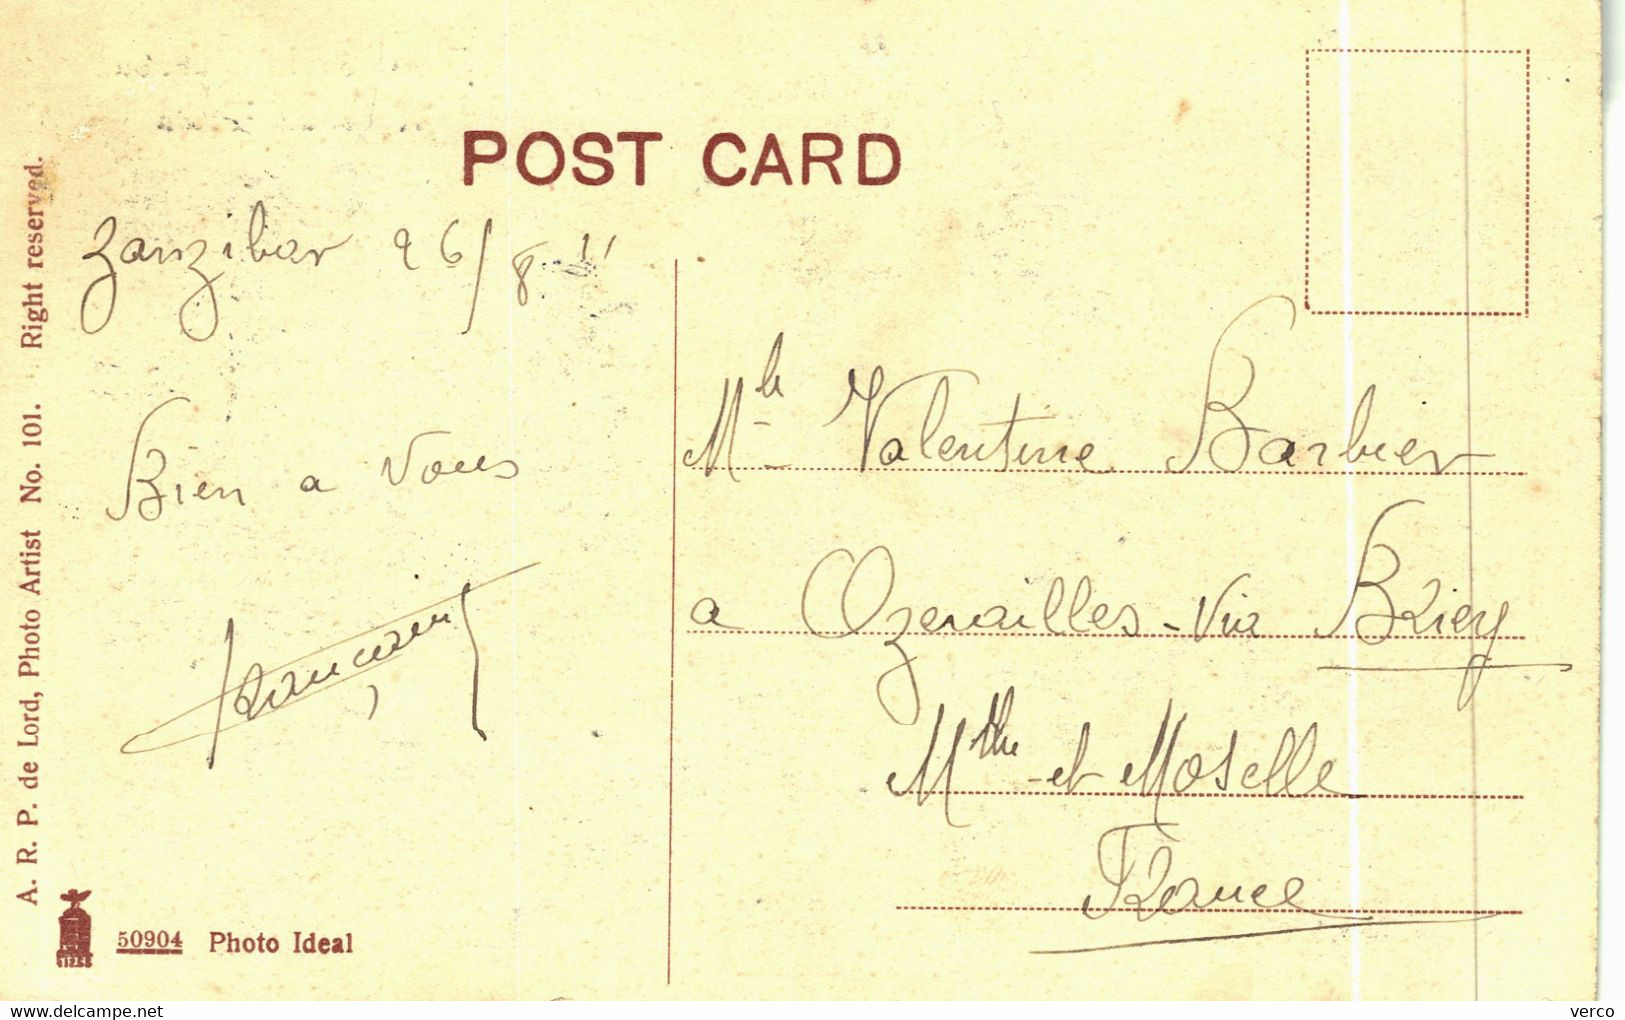 POST CARD
Zanzibar 26/8 11
Bien a vous
Mlle Valentine Barbier
a Ozerailles - Via Briey
Mthe et Moselle
France
A. R. P. de Lord, Photo Artist No. 101. Right reserved.
50904 Photo Ideal
delcampe.net
verco